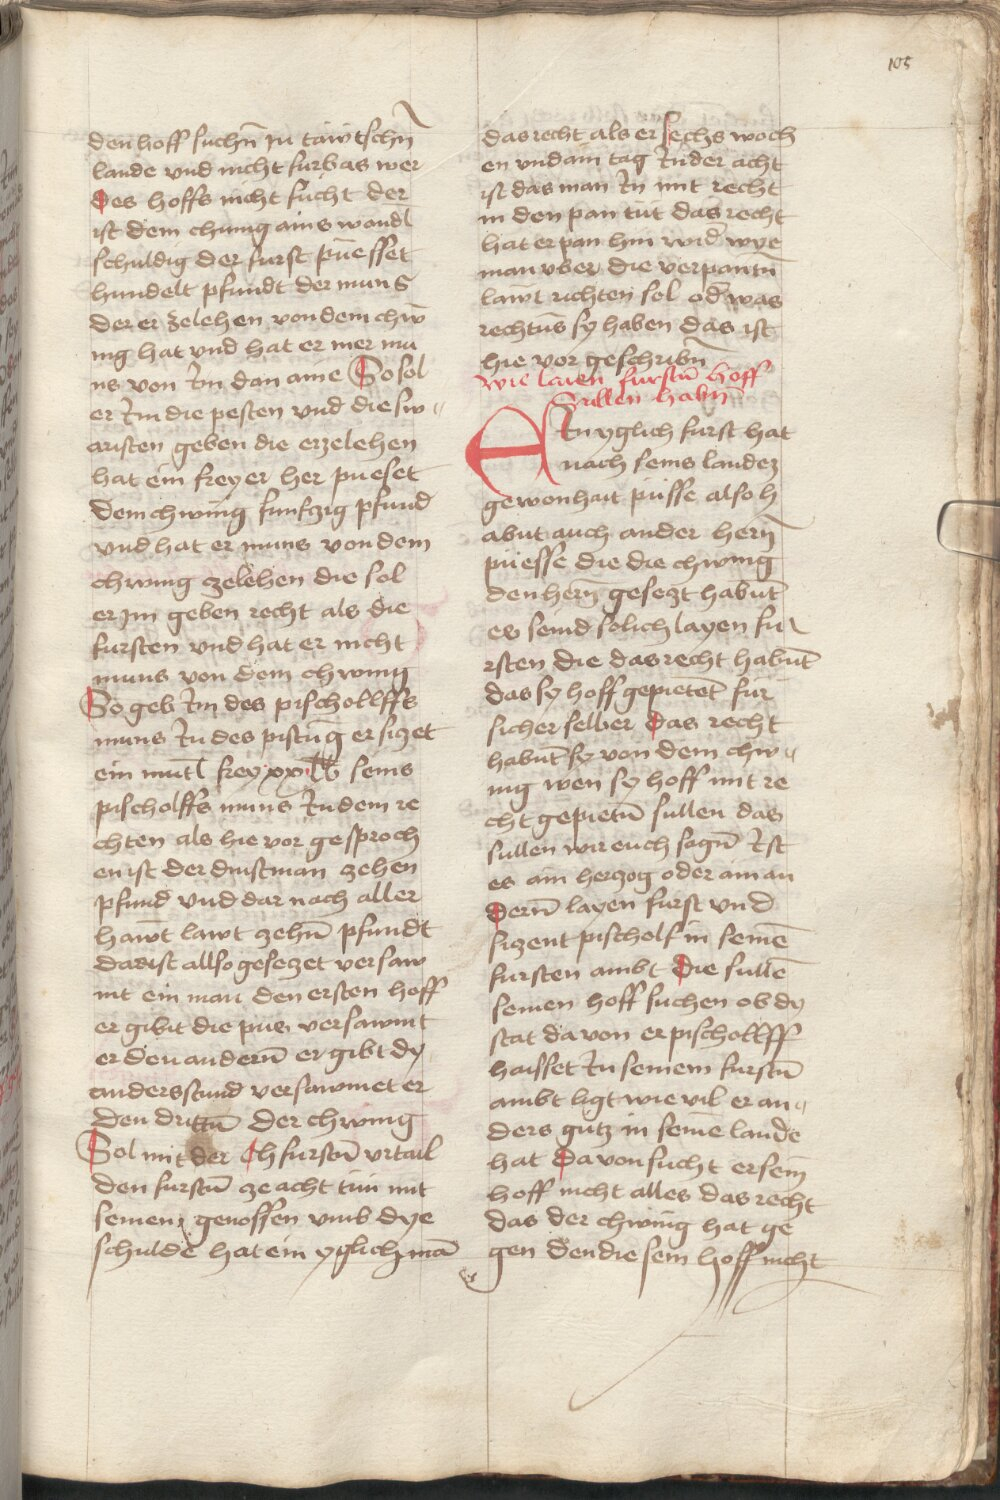 105
den hoff suchn̄ Jn tawtschn̄
lande vnd nicht furbas wer
des hoffs nicht sucht der
ist dem chunig ains wandl
schuldig der furst puesset
hundelt pfundt der muns
der er zelehen von dem chw̄
nig hat vnd hat er mer mu
ns von Im dan aine So sol
er Im die pesten vnd die sw
aristen geben die er zelehen
hat ein freyer her pueset
dem chwnig funfczig pfund
vnd hat er muns von dem
chwnig zelehen die sol
er Jm geben recht als die
fursten vnd hat er nicht
muns von dem chwnig
So geb Im des pischollffs
muns In des pistūg er siczet
ein mutl frey xx lb seins
pischolffs muns In dem re
chten als hie vor gesproch
en ist der dinstman zehen
pfund vnd dar nach aller
hawt lawt zehn̄ pfundt
das ist allso gesezet versaw
mt ein man den ersten hoff
er gibt die pus versawmt
er den andern̄ er gibt dy
anders stund versawmet er
den drittn̄ der chwnig
Sol mit der Ch furstn̄ vrtail
den furstn̄ ze acht tun mit
seinen genossen vmb dye
schulde hat ein yglich mā
das recht als er sechs woch
en vnd ain tag In der acht
ist das man In mit recht
in den pan tut das recht
hat er pan hin wid̄ wye
man vber die verpantn̄
lawt richten sol od̄ was
rechtūs sy haben das ist
hie vor geschribn̄
wie laien furstn̄ hoff
Sullen habn̄
EIn yglich furst hat
nach seins landez
gewonhait pusse also h
abnt auch ander hern̄
puesse die die chwnig
den hern̄ gesezt habnt̄
es seind solich layen fu
rsten die das recht habnt̄
das sy hoff gepietet̄ fur
sicher selber das recht
habnt̄ sy von dem chw
nig wen sy hoff mit re
cht gepietn̄ sullen das
sullen wir euch sagn̄ Ist
es ain herzog oder ain an
dern̄ layen furst vnd
sizent pischolf in seinē
fursten ambt die sullē
seinen hoff suchen ob dy
stat da von er pischollff
haisset In seinem furstn̄
ambt ligt wie vil er an
ders gutz in seinē lande
hat Da von sucht er sein
hoff nicht alles das recht
das der chwnig hat ge
gen den die sein hoff nicht